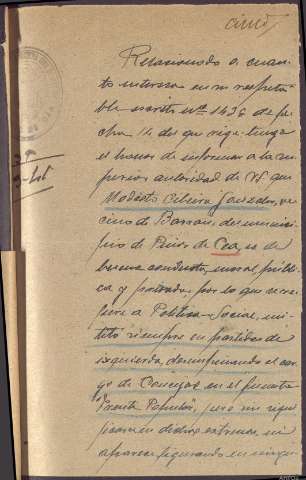 Relacionado a cuan-
to interesa en su respeta-
ble escrito nº 1436 de fe-
cha 14 del que rige tengo
el honor de informar a la su-
perior autoridad de VS que
Modesto, ve-
cino de Barran, de municí-
pio de Piñor de Cea, es de
buena conducta, moral, públi-
ca y privada, por lo que se re-
fiere a Politica-Social, mi-
litó siempre en partidos de
izquierda, desempeñando el car-
go de Concejal en el funesto
Frente Popular, pero sin
en dichos extremos, ni
aparece figurando en ningu-